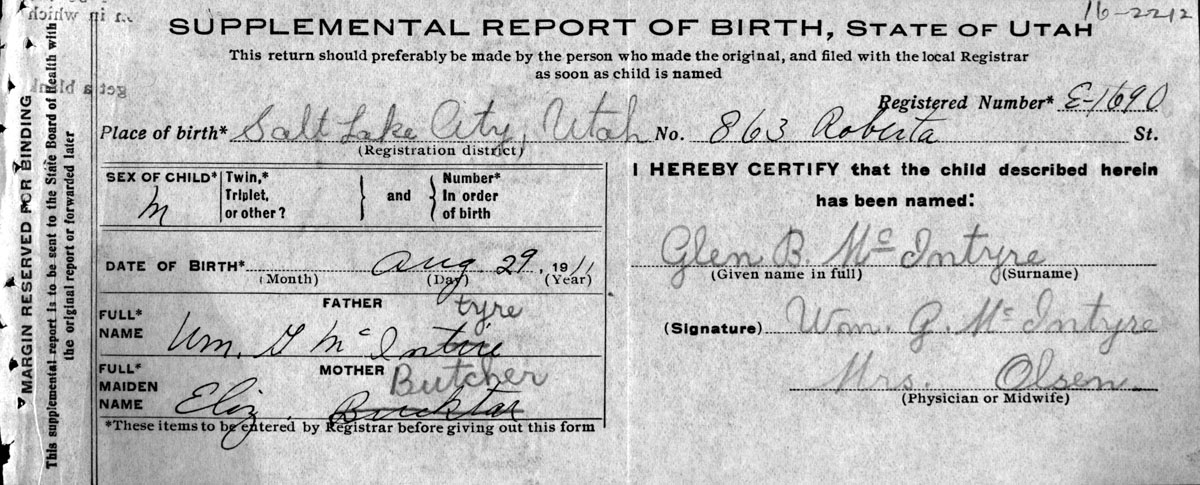 16-2212
SUPPLEMENTAL REPORT OF BIRTH, STATE OF UTAH
This return should preferably be made by the person who made the original, and filed with the local Registrar
as soon as child is named
Registered Number* E-1690
Place of birth* Salt Lake City, Utah No. 863 Roberta St.
(Registration district)
SEX OF CHILD* M
Twin,* Triplet, or other? } and { Number* In order of birth
DATE OF BIRTH* Aug 29, 1911
(Month) (Day) (Year)
FATHER tyre
FULL* NAME Wm. G McIntire
MOTHER Butcher
FULL* MAIDEN NAME Eliz.
*These items to be entered by Registrar before giving out this form
I HEREBY CERTIFY that the child described herein
has been named:
Glen B. McIntyre
(Given name in full) (Surname)
(Signature) Wm. G. McIntyre
Mrs. Olsen.
(Physician or Midwife)
MARGIN RESERVED FOR BINDING
This supplemental report is to be sent to the State Board of Health with
the original report or forwarded later
r in which
get a blank